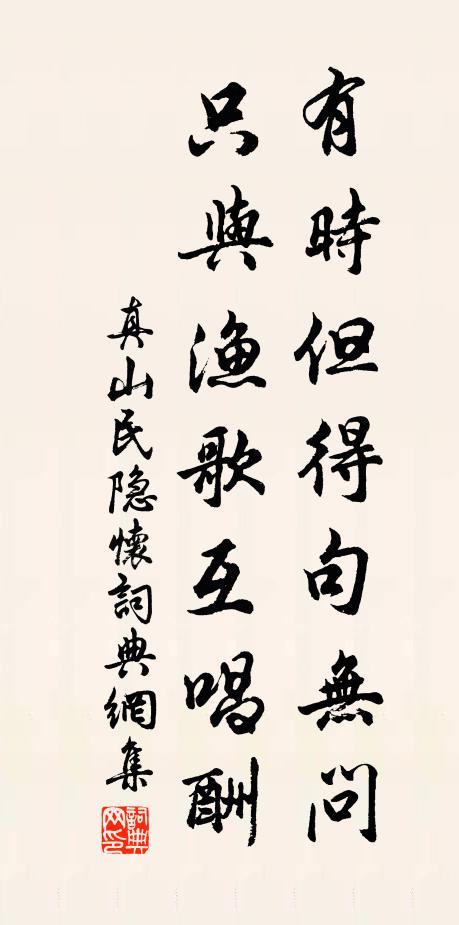 有時但得句無問
只與漁歌互唱酬
真山民隐懷詞典網集
詞典網印